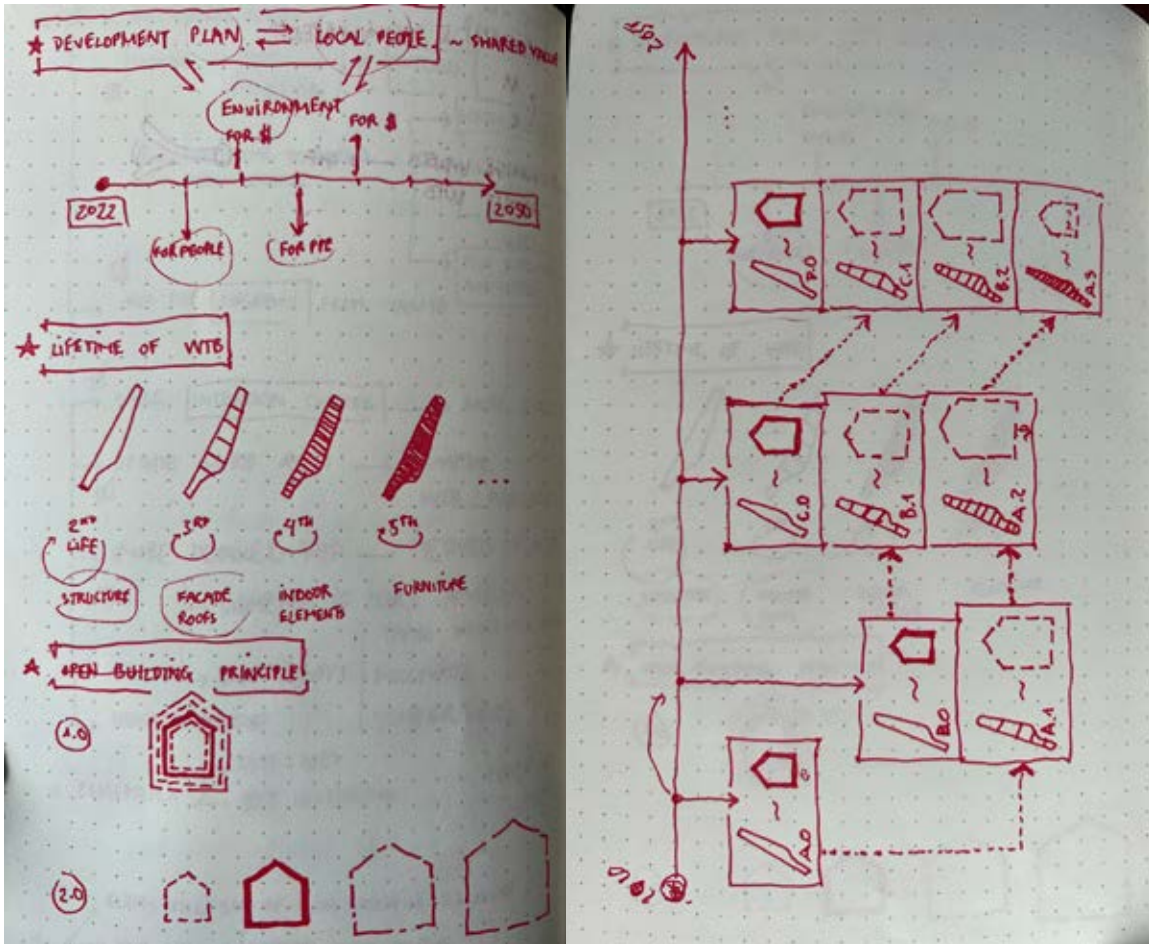 DEVELOPMENT PLAN ⇌ LOCAL PEOPLE ~ SHARED VALUE
ENVIRONMENT
FOR $
FOR $
2022
2050
FOR PEOPLE
FOR PPL
LIFETIME OF WTB
...
2ND LIFE
3RD
4TH
5TH
STRUCTURE
FACADE ROOFS
INDOOR ELEMENTS
FURNITURE
OPEN BUILDING PRINCIPLE
1.0
2.0
...
~ ~ ~ ~
D.0 C.1 B.2 A.3
~ ~ ~
C.0 B.1 A.2
~ ~
B.0 A.1
~
A.0